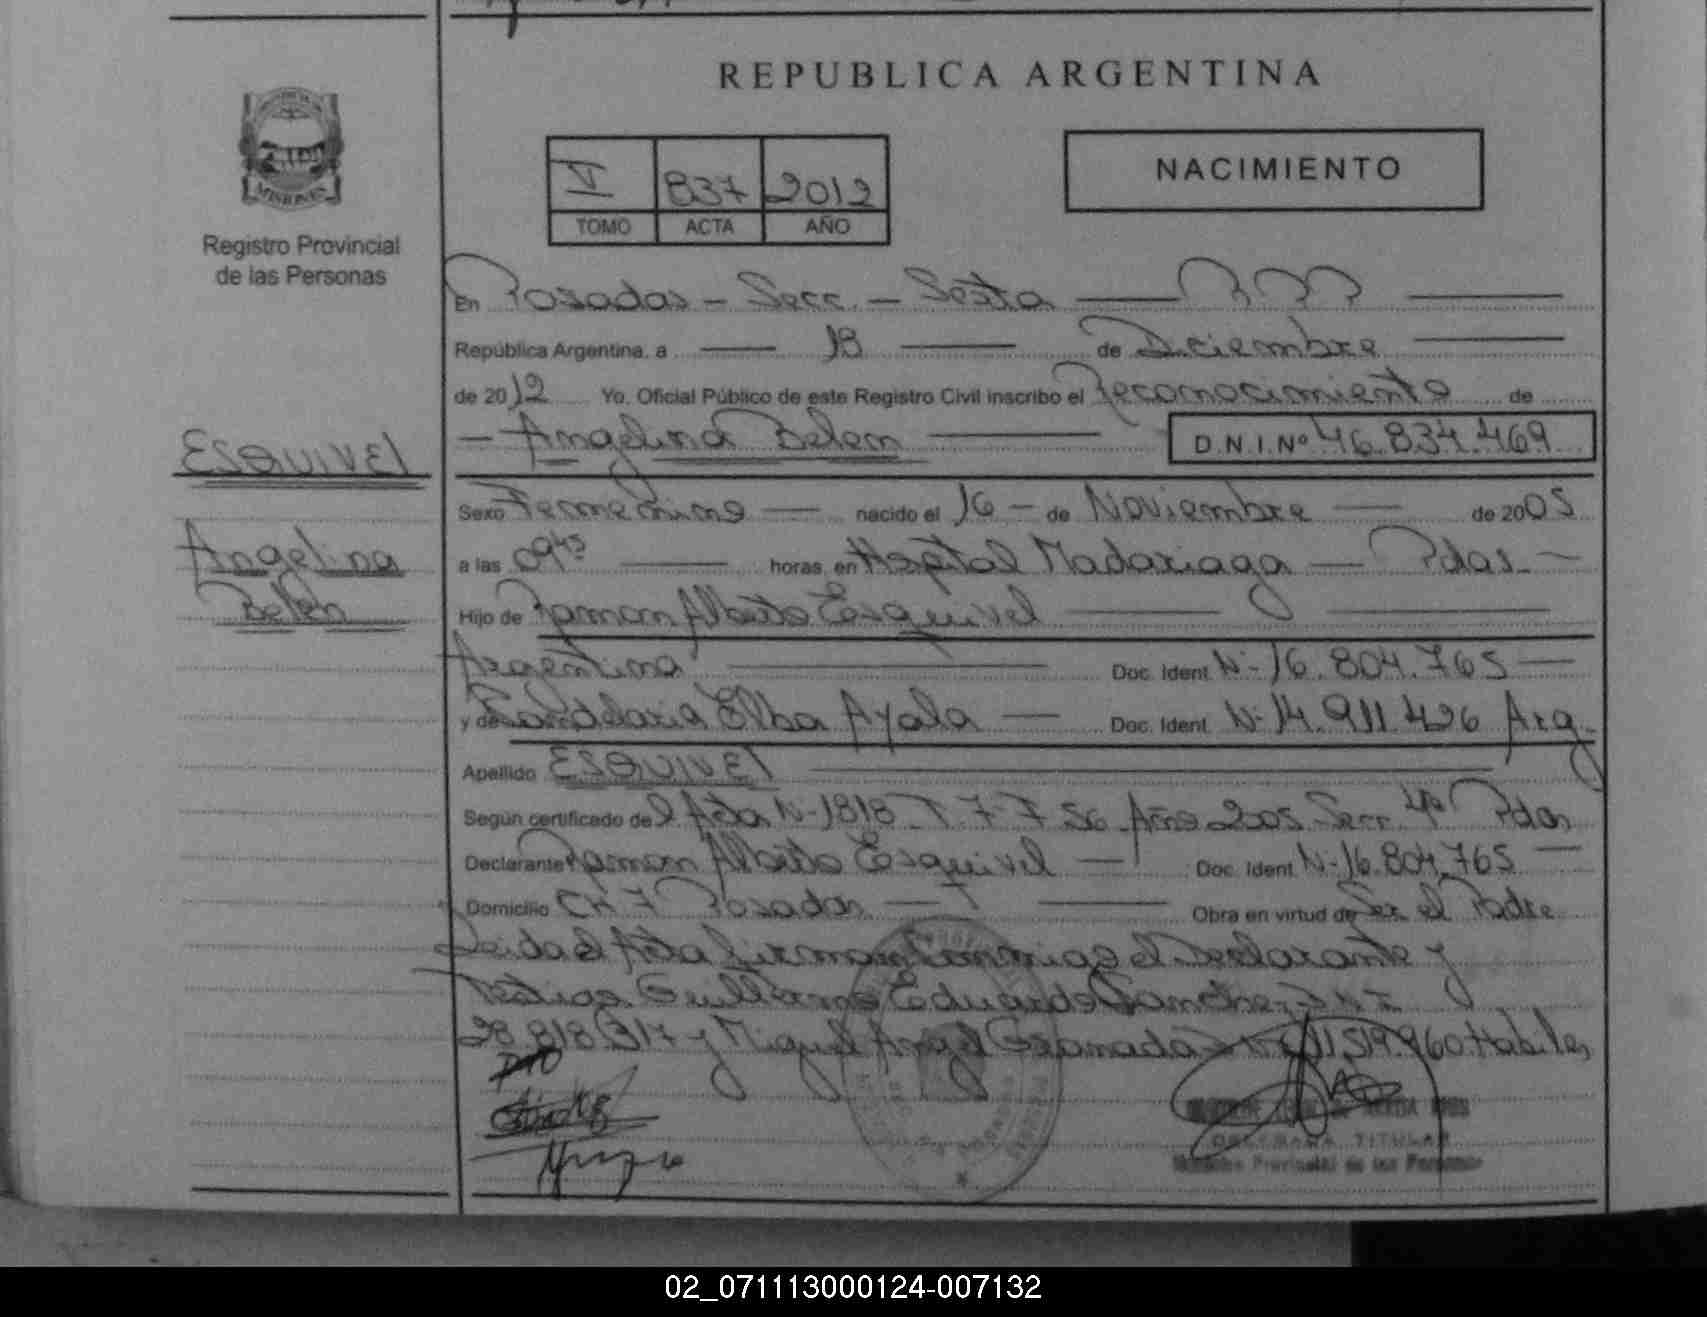 REPUBLICA ARGENTINA
V 837 2012
TOMO ACTA AÑO
NACIMIENTO
MISIONES
Registro Provincial
de las Personas
En Posadas - Secc. - Sexta
República Argentina, a 18 de Diciembre
de 2012 Yo, Oficial Público de este Registro Civil inscribo el Reconocimiento de
Angelina Belen D.N.I.Nº 46.834.469
ESQUIVEL
Angelina
Belén
Sexo Femenino nacido el 16 - de Noviembre de 2005
a las 09 45 horas, en Hospital Madariaga - Pdas -
Hijo de Ramon Alberto Esquivel
Argentina Doc. Ident. Nº 16.804.765
y de Candelaria Elba Ayala Doc. Ident. Nº 14.911.426 Arg
Apellido ESQUIVEL
Según certificado del Acta Nº 1818 T 7 - F 56 Año 2005 Secc. 4ª Pdas
Declarante Ramon Alberto Esquivel Doc. Ident. Nº 16.804.765
Domicilio CH 7 Posadas Obra en virtud de Ser el Padre
Leida el Acta firman Conmigo el Declarante y
Testigos Guillermo Eduardo Sanchez DNI
28.818.317 y Miguel Angel Granada 11.519.960 Habiles
TITULAR
Provincial de las Personas
02_071113000124-007132